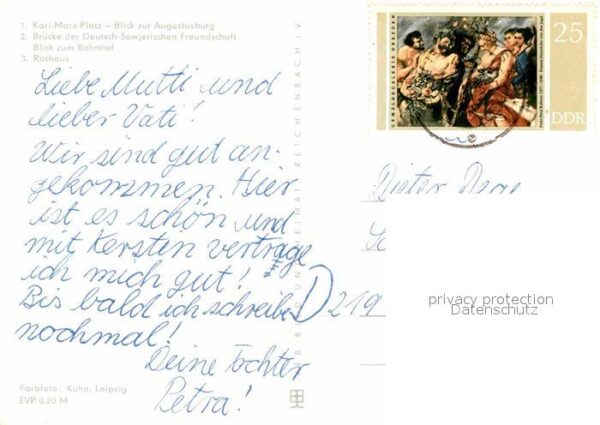 1. Karl-Marx-Platz – Blick zur Augustusburg
2. Brücke der Deutsch-Sowjetischen Freundschaft
Blick zum Bahnhof
3. Rathaus
Liebe Mutti und
lieber Vati!
Wir sind gut an-
gekommen. Hier
ist es schön und
mit Kersten vertrage
ich mich gut!
Bis bald ich schreibe
nochmal!
Deine Tochter
Petra!
Farbfoto: Kühn, Leipzig
EVP 0,20 M
BILD UND HEIMAT REICHENBACH i. V.
GEMÄLDEGALERIE DRESDEN
25
DDR
Dieter
D 219
privacy protection
Datenschutz